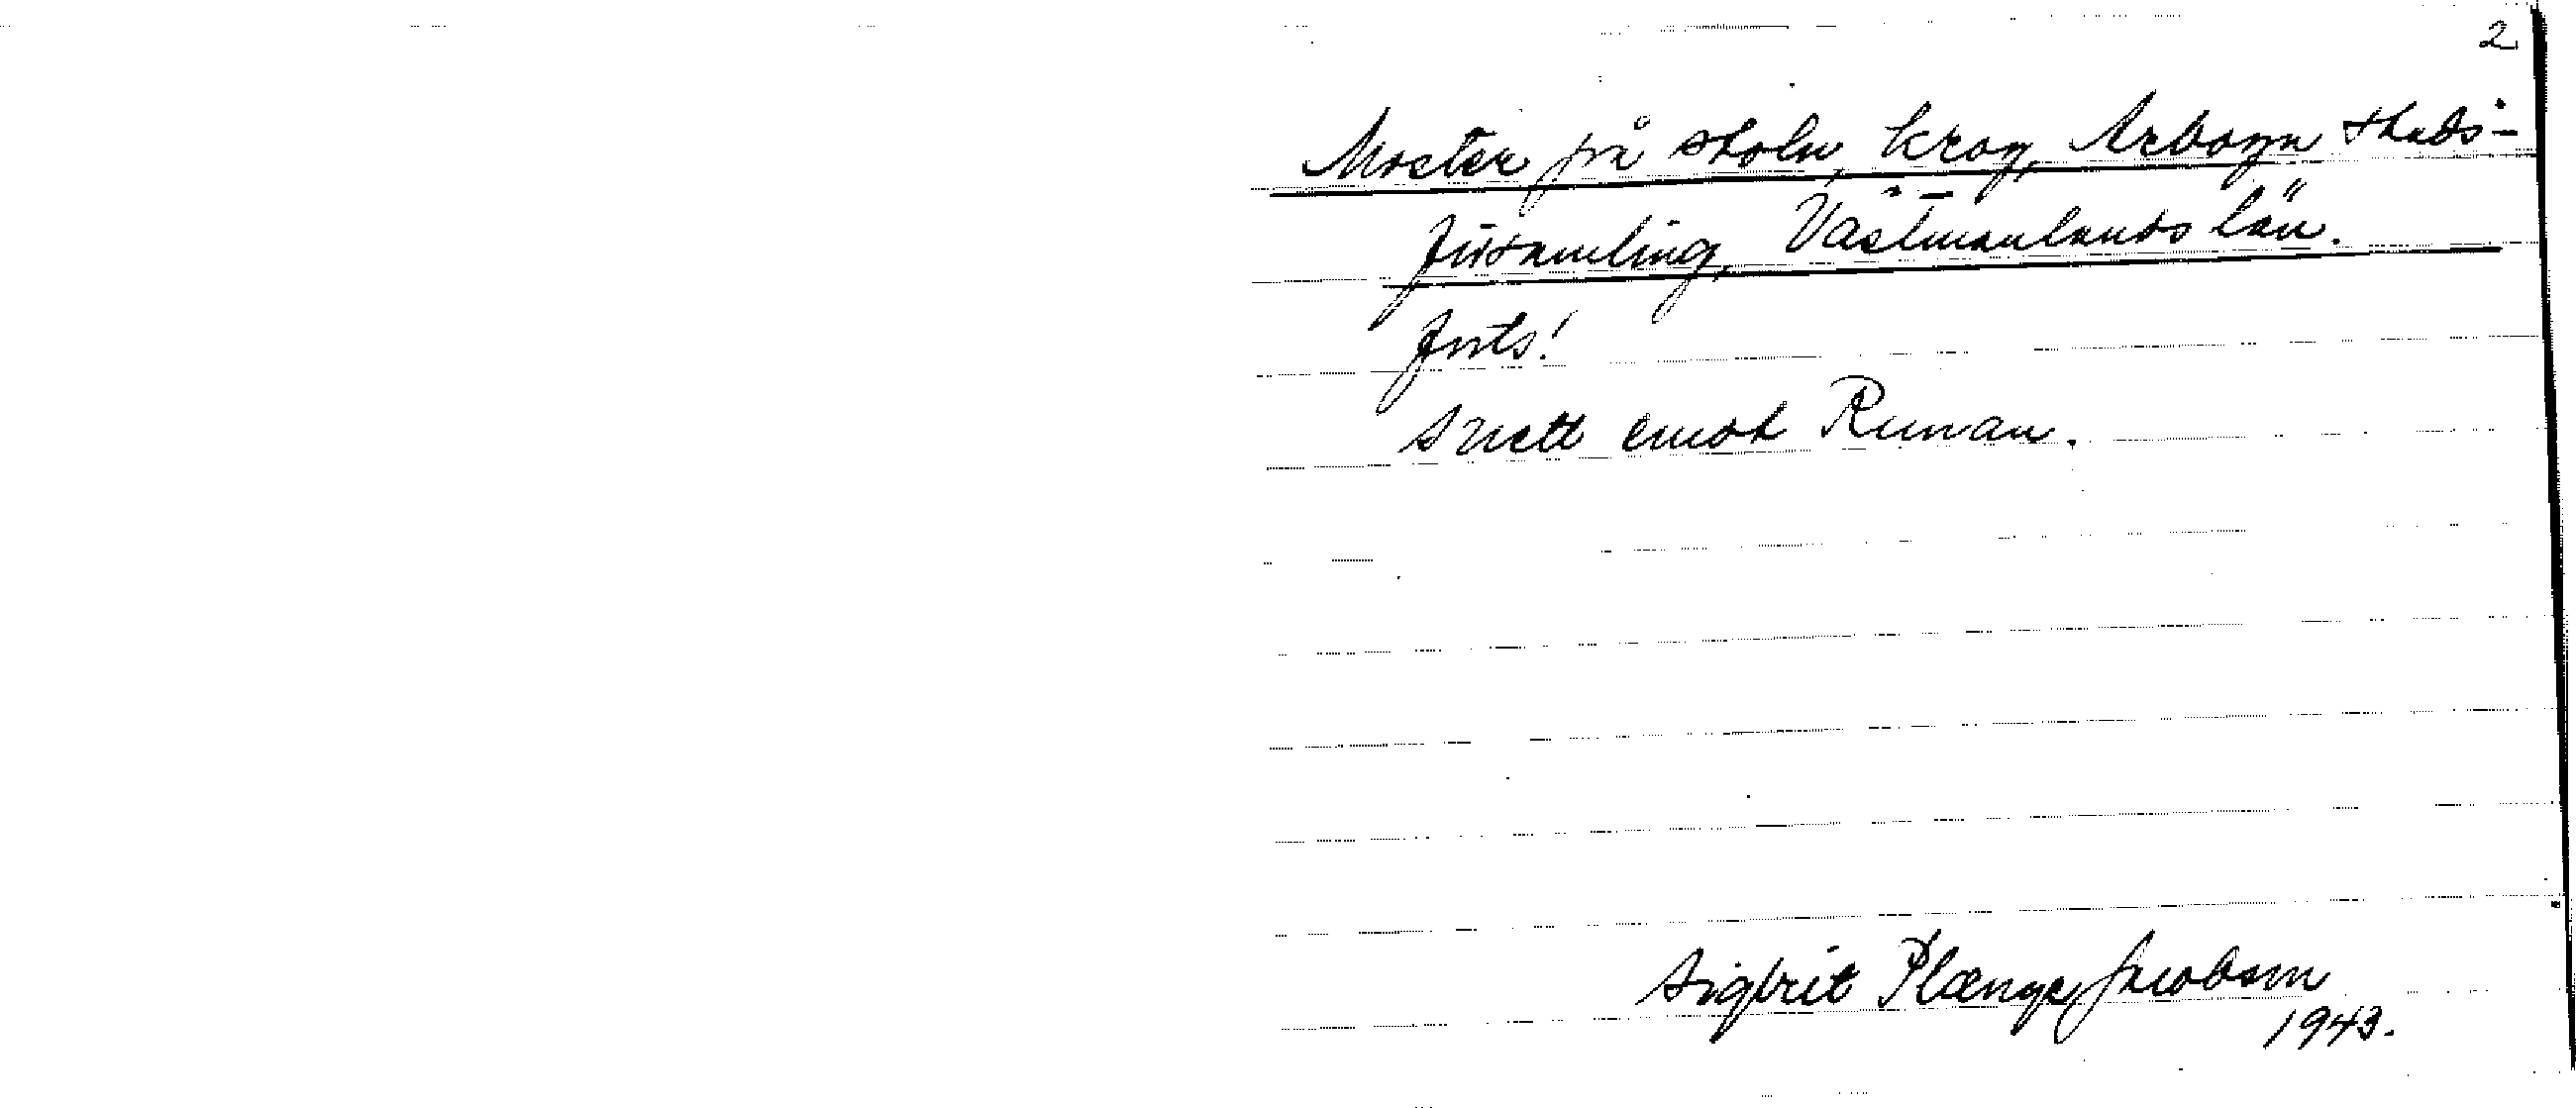 2
Moster på stoln, krog, Arboga stads-
församling, Västmanlands län.
forts!
snett emot Runan.
Sigbrit Plænge Jacobson
1943.